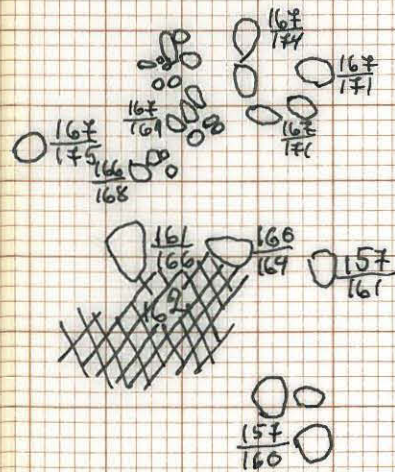 167
174
167
171
167
169
167
175
166
168
161
166
160
164
157
161
157
160